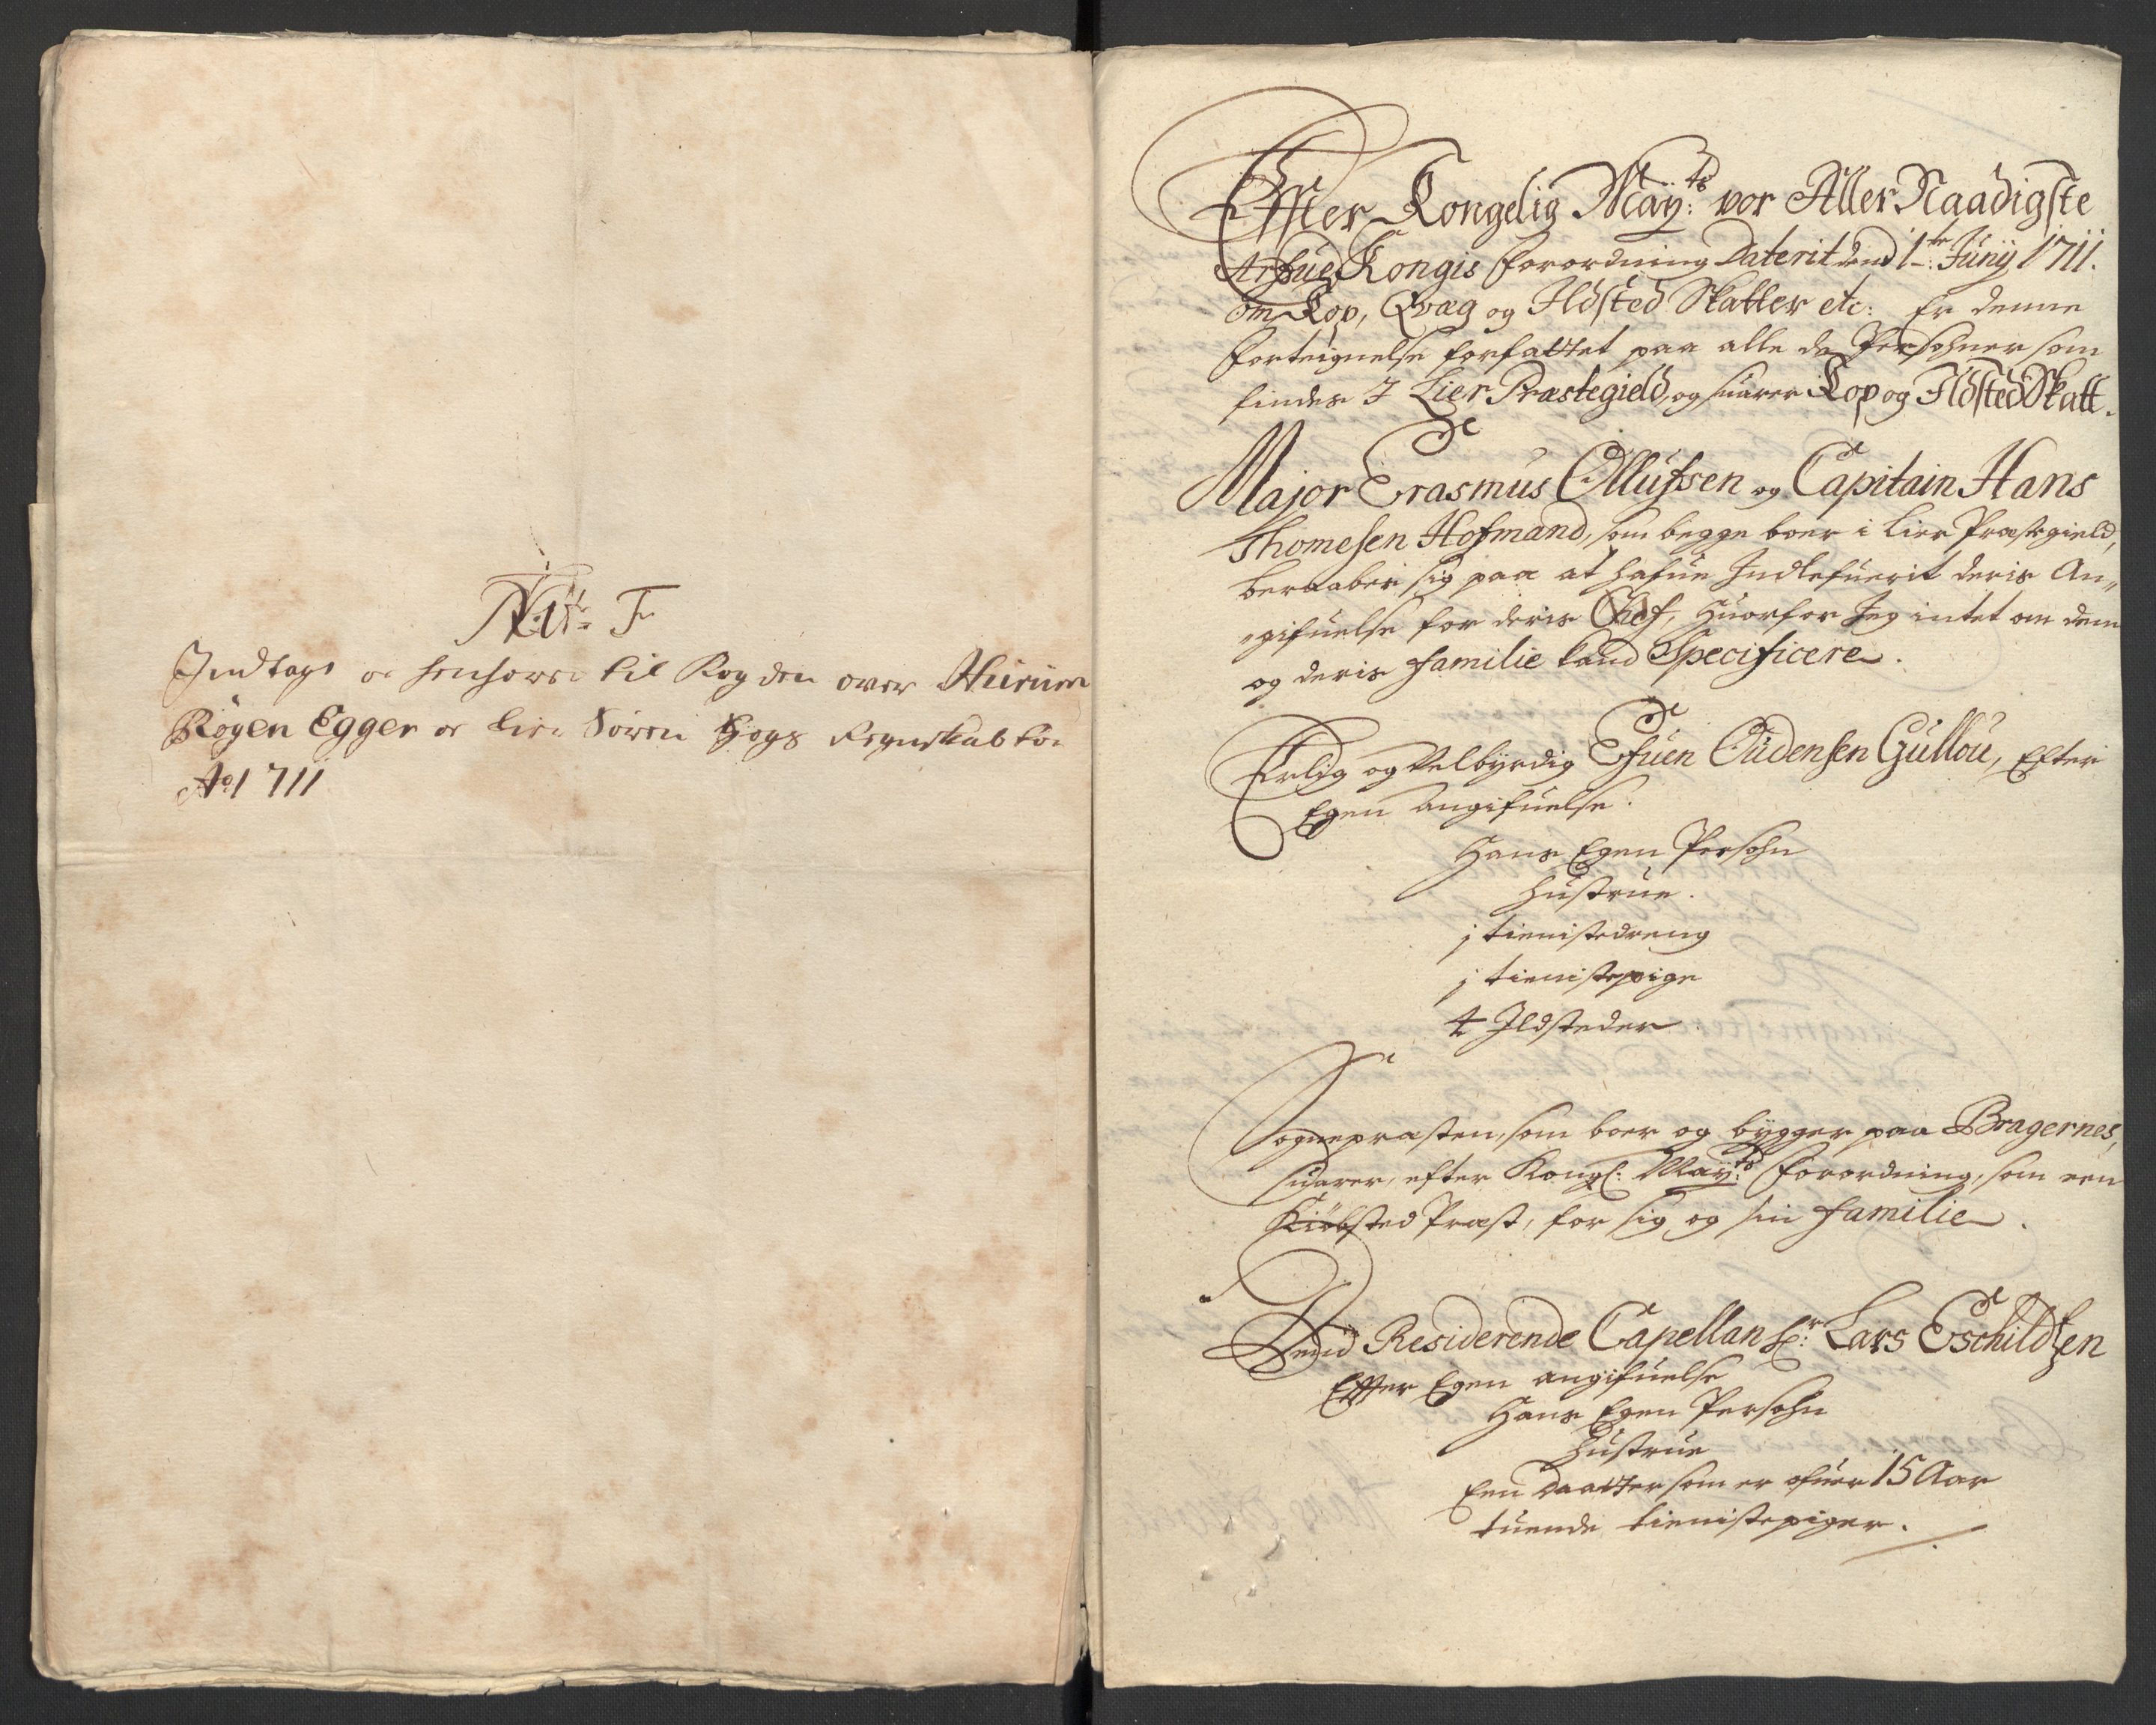 Litr: F
Indlagt og henhører til Fogden over Hurum
Røgen Egger og Lier Søren Hogs Regnskab for
Ao 1711
Effter Kongelig May:ts vor Aller Naadigste
Arfue Kongis forordning Daterit dend 1te: Junij 1711.
om Kop, Qvæg og Ildsted Skatter etc: Er denne
forteignelse forfattet paa alle de Persohner som
findes I Lier Præstegield, og suarer Kop og Ildsted Skatt.
Major Erasmus Ollufsen og Capitain Hans
Thomesen Hofmand, som begge boer i Lier Præstegield,
beraaber sig paa at hafue Indlefuerit deris An„
„gifuelse for deris Chef, huorfor Jeg intet om dem
og deris familie kand Specificere.
Erlig og Velbyrdig Efuen Oudensen Gullou, Efter
Egen angifuelse.
Hans Egen Persohn
Hustrue.
j tienistedreng
j tienistepige
4 Ildsteder
Sognepræsten, som boer og bygger paa Bragernes,
suarer, efter Kongl: May:ts forordning, som een
Kiøbsted Præst, for sig og sin familie.
Dend Residerende Capellan Hr: Lars Eschildsen
Effter Egen angifuelse
Hans Egen Persohn
Hustrue
Een Daatter som er ofuer 15 Aar
tuende tienistepiger.